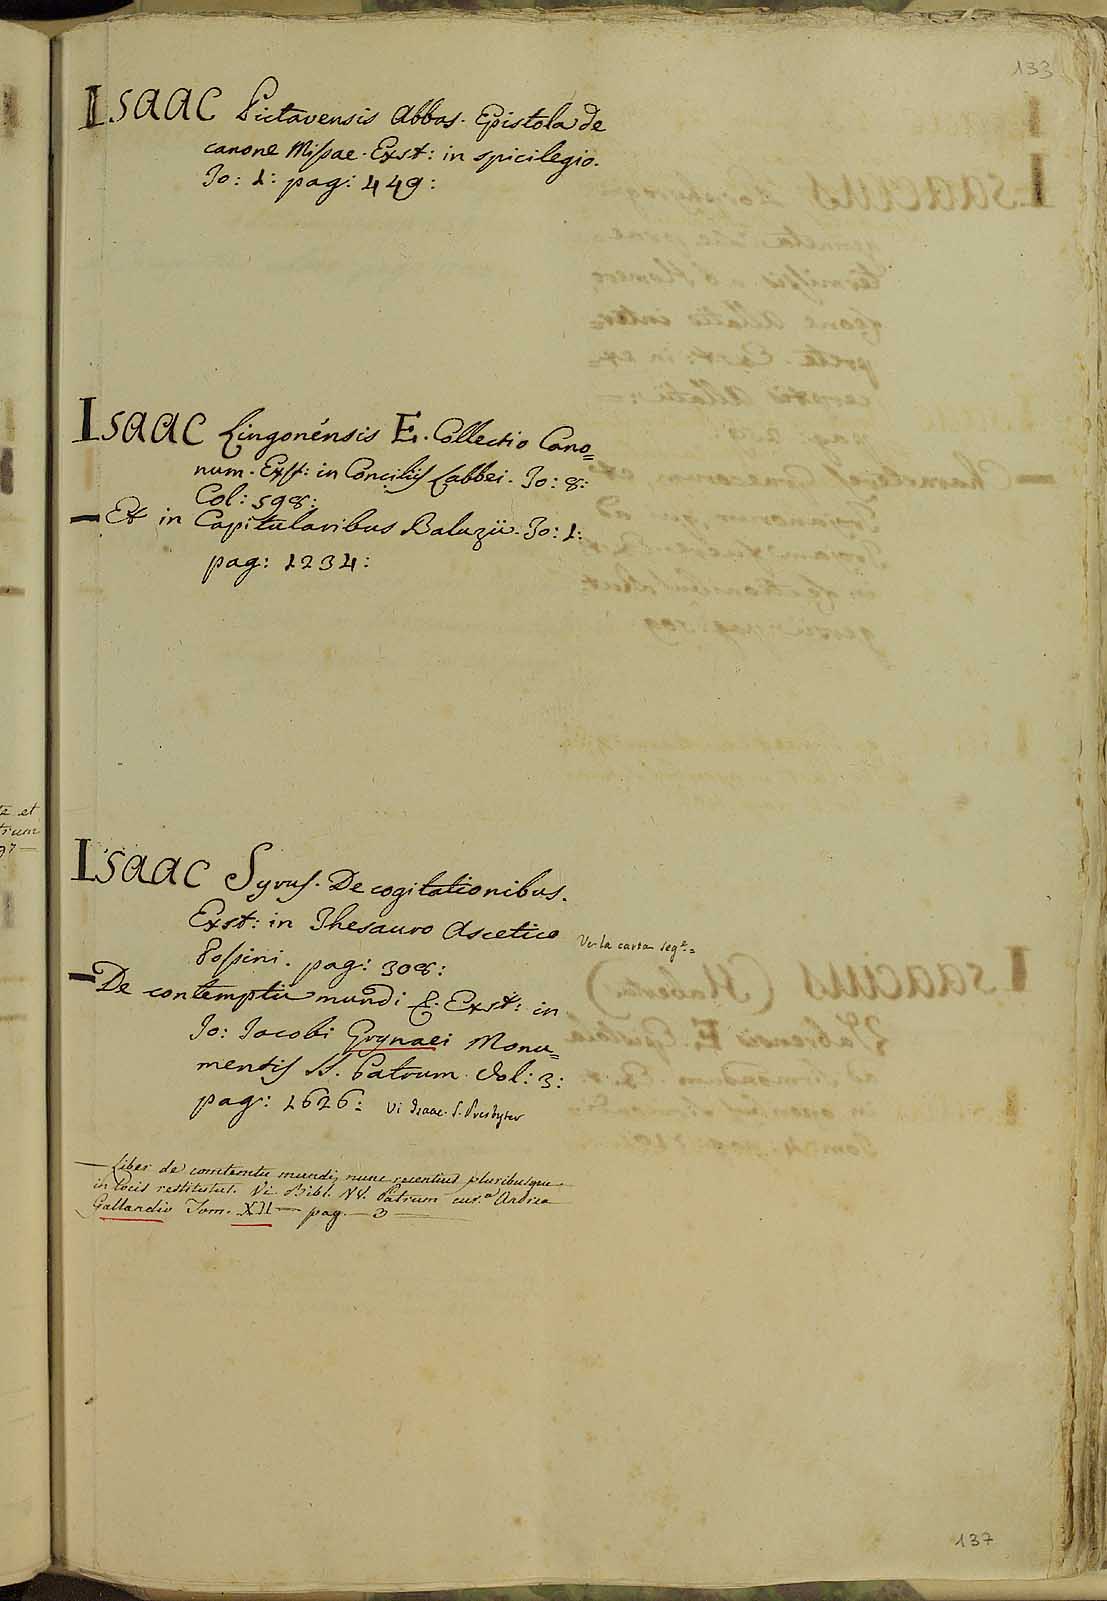 133
ISAAC Pictavensis Abbas. Epistola de
canone Missae. Exst: in spicilegio.
To: 1: pag: 449:
ISAAC Lingonénsis E. Collectio Cano=
num. Exst: in Conciliis Labbei. To: 8:
Col: 598:
— Et in Capitularibus Baluzii. To: 1:
pag: 1234:
ISAAC Syrus. De cogitationibus.
Exst: in Thesauro Ascetico
Possini. pag: 308:
Ve la carta segte.=
— De contemptu mundi L. Exst: in
Jo: Jacobi Grynaei Monu=
mentis SS. Patrum. Vol: 3:
pag: 1626: Vi Isaac. S. Presbyter
— Liber de contemtu mundi, nunc recentius pluribusque
in locis restitutus. Vi Bibl. VV. Patrum cur.a Andrea
Gallandio Tom. XII — pag. — 3 —
te et
trum
97 —
137